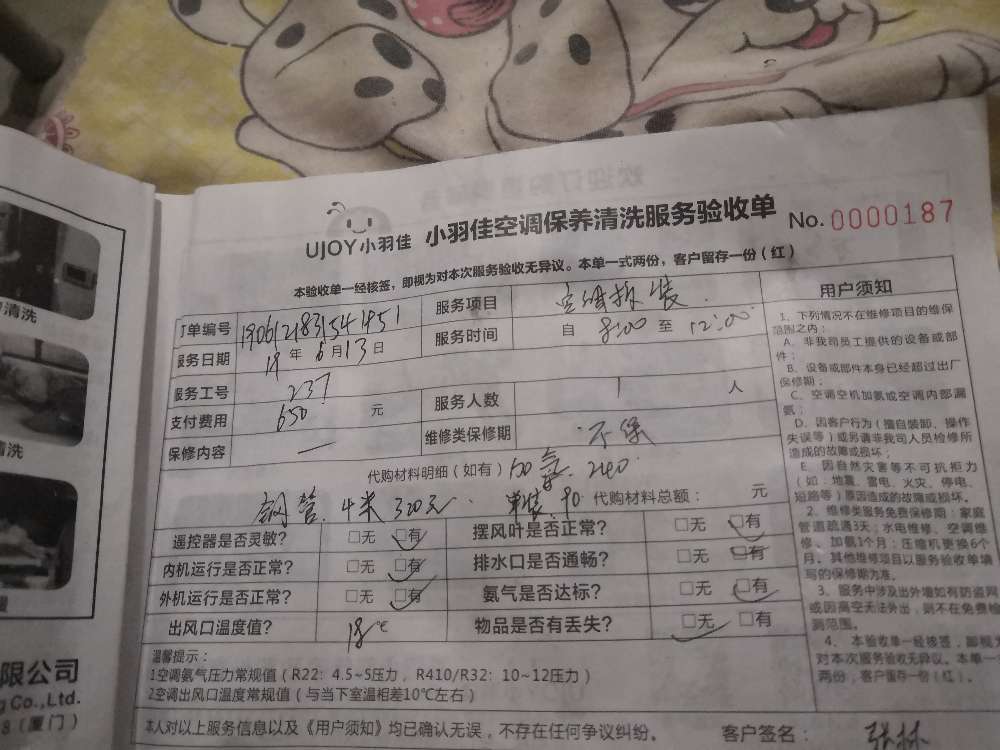 UJOY小羽佳 小羽佳空调保养清洗服务验收单 No. 0000187
本验收单一经核签，即视为对本次服务验收无异议。本单一式两份，客户留存一份（红）
订单编号 服务项目 空调拆装
服务日期 19年6月13日 服务时间 自 8:00 至 12:00
服务工号 237 服务人数 1 人
支付费用 650 元 维修类保修期 不保
保修内容 —
代购材料明细（如有） 240
铜管 4米 320元 90 代购材料总额： 元
遥控器是否灵敏？ □无 □有 摆风叶是否正常？ □无 □有
内机运行是否正常？ □无 □有 排水口是否通畅？ □无 □有
外机运行是否正常？ □无 □有 氨气是否达标？ □无 □有
出风口温度值？ 18℃ 物品是否有丢失？ □无 □有
温馨提示：
1空调氨气压力常规值（R22：4.5~5压力，R410/R32：10~12压力）
2空调出风口温度常规值（与当下室温相差10℃左右）
本人对以上服务信息以及《用户须知》均已确认无误，不存在任何争议纠纷。 客户签名：
用户须知
1、下列情况不在维修项目的维保
范围之内：
A、非我司员工提供的设备或部
件；
B、设备或部件本身已经超过出厂
保修期；
C、空调空机加氨或空调内部漏
氨；
D、因客户行为（擅自装卸、操作
失误等）或另请非我司人员检修所
造成的故障或损坏；
E、因自然灾害等不可抗拒力
（如：地震、雷电、火灾、停电、
短路等）原因造成的故障或损坏。
2、维修类服务免费保修期：家庭
管道疏通3天；水电维修、空调维
修、加氨1个月；压缩机更换6个
月。其他维修项目以服务验收单填
写的保修期为准。
3、服务中涉及出外墙如有防盗网
或因高空无法外出，则不在免费检
测范围。
4、本验收单一经核签，即视
对本次服务验收无异议。本单一
两份，客户留存一份（红）。
清洗
清洗
限公司
g Co.,Ltd.
8（厦门）